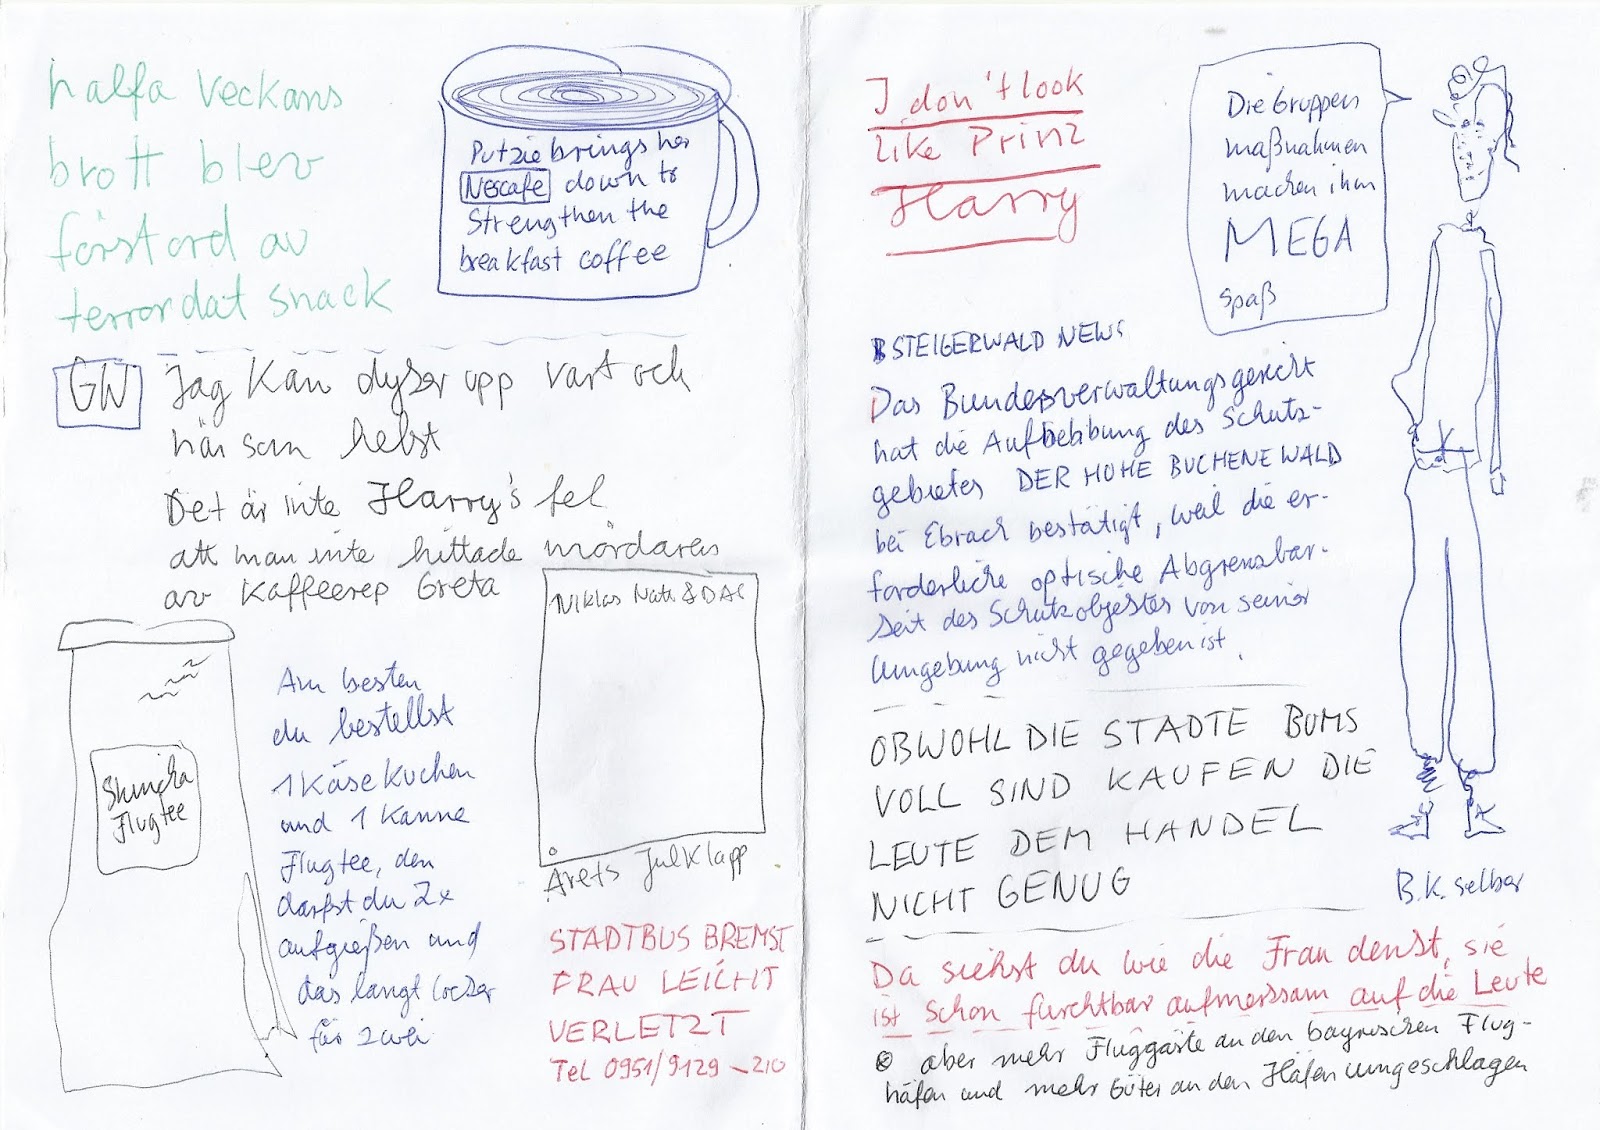 halfa veckans
brott blev
förstörd av
terrordåt snack
Putzie brings her
Nescafe down to
Strengthen the
breakfast coffee
GW
Jag kan dyker upp vart och
när som helst
Det är inte Harry's fel
att man inte hittade mördaren
av Kaffeerep Greta
Flugtee
Am besten
du bestellst
1 Käsekuchen
und 1 Kanne
Flugtee, den
darfst du 2x
aufgießen und
das langt locker
für zwei
Niklas Natt & DAG
Årets Julklapp
STADTBUS BREMST
FRAU LEICHT
VERLETZT
Tel 0951/9129-210
I don't look
like Prinz
Harry
Die Gruppen
maßnahmen
machen ihm
MEGA
Spaß
B.K. selber
STEIGERWALD NEWS
Das Bundesverwaltungsgericht
hat die Aufhebung des Schutz-
gebietes DER HOHE BUCHENE WALD
bei Ebrach bestätigt, weil die er-
forderliche optische Abgrenzbar-
keit des Schutzobjektes von seiner
Umgebung nicht gegeben ist.
OBWOHL DIE STÄDTE BUMS
VOLL SIND KAUFEN DIE
LEUTE DEM HANDEL
NICHT GENUG
Da siehst du wie die Frau denkt, sie
ist schon furchtbar aufmerksam auf die Leute
aber mehr Fluggäste an den bayrischen Flug-
häfen und mehr Güter an den Häfen umgeschlagen